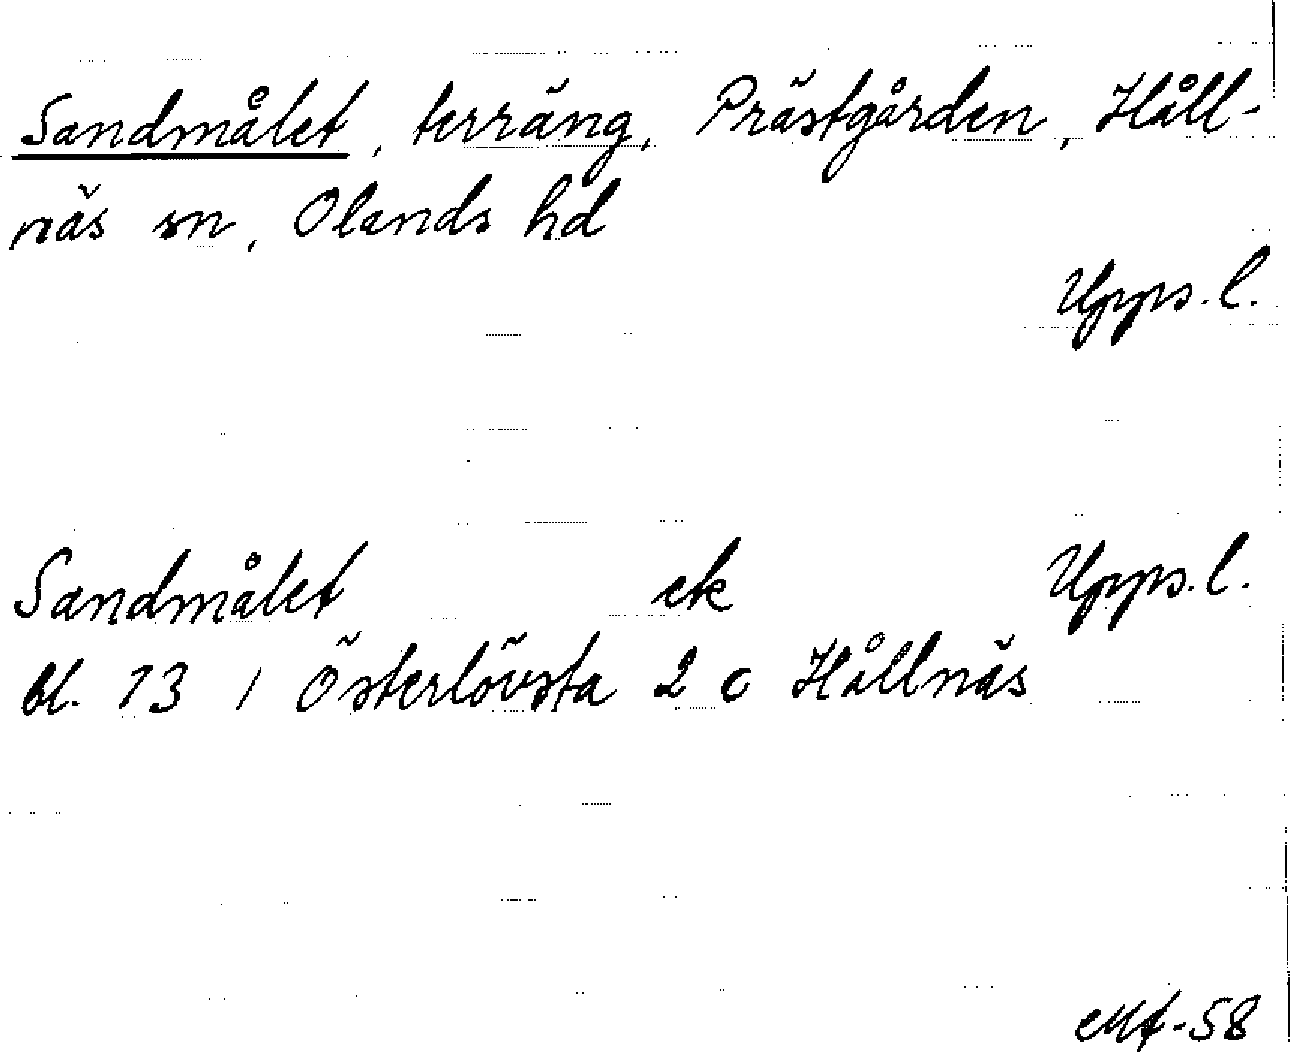 Sandmålet, terräng, Prästgården, Håll-
näs sn, Olands hd
Upps.l.
Sandmålet ek Upps.l.
bl. 13 / Österlövsta 2 c Hållnäs
-58